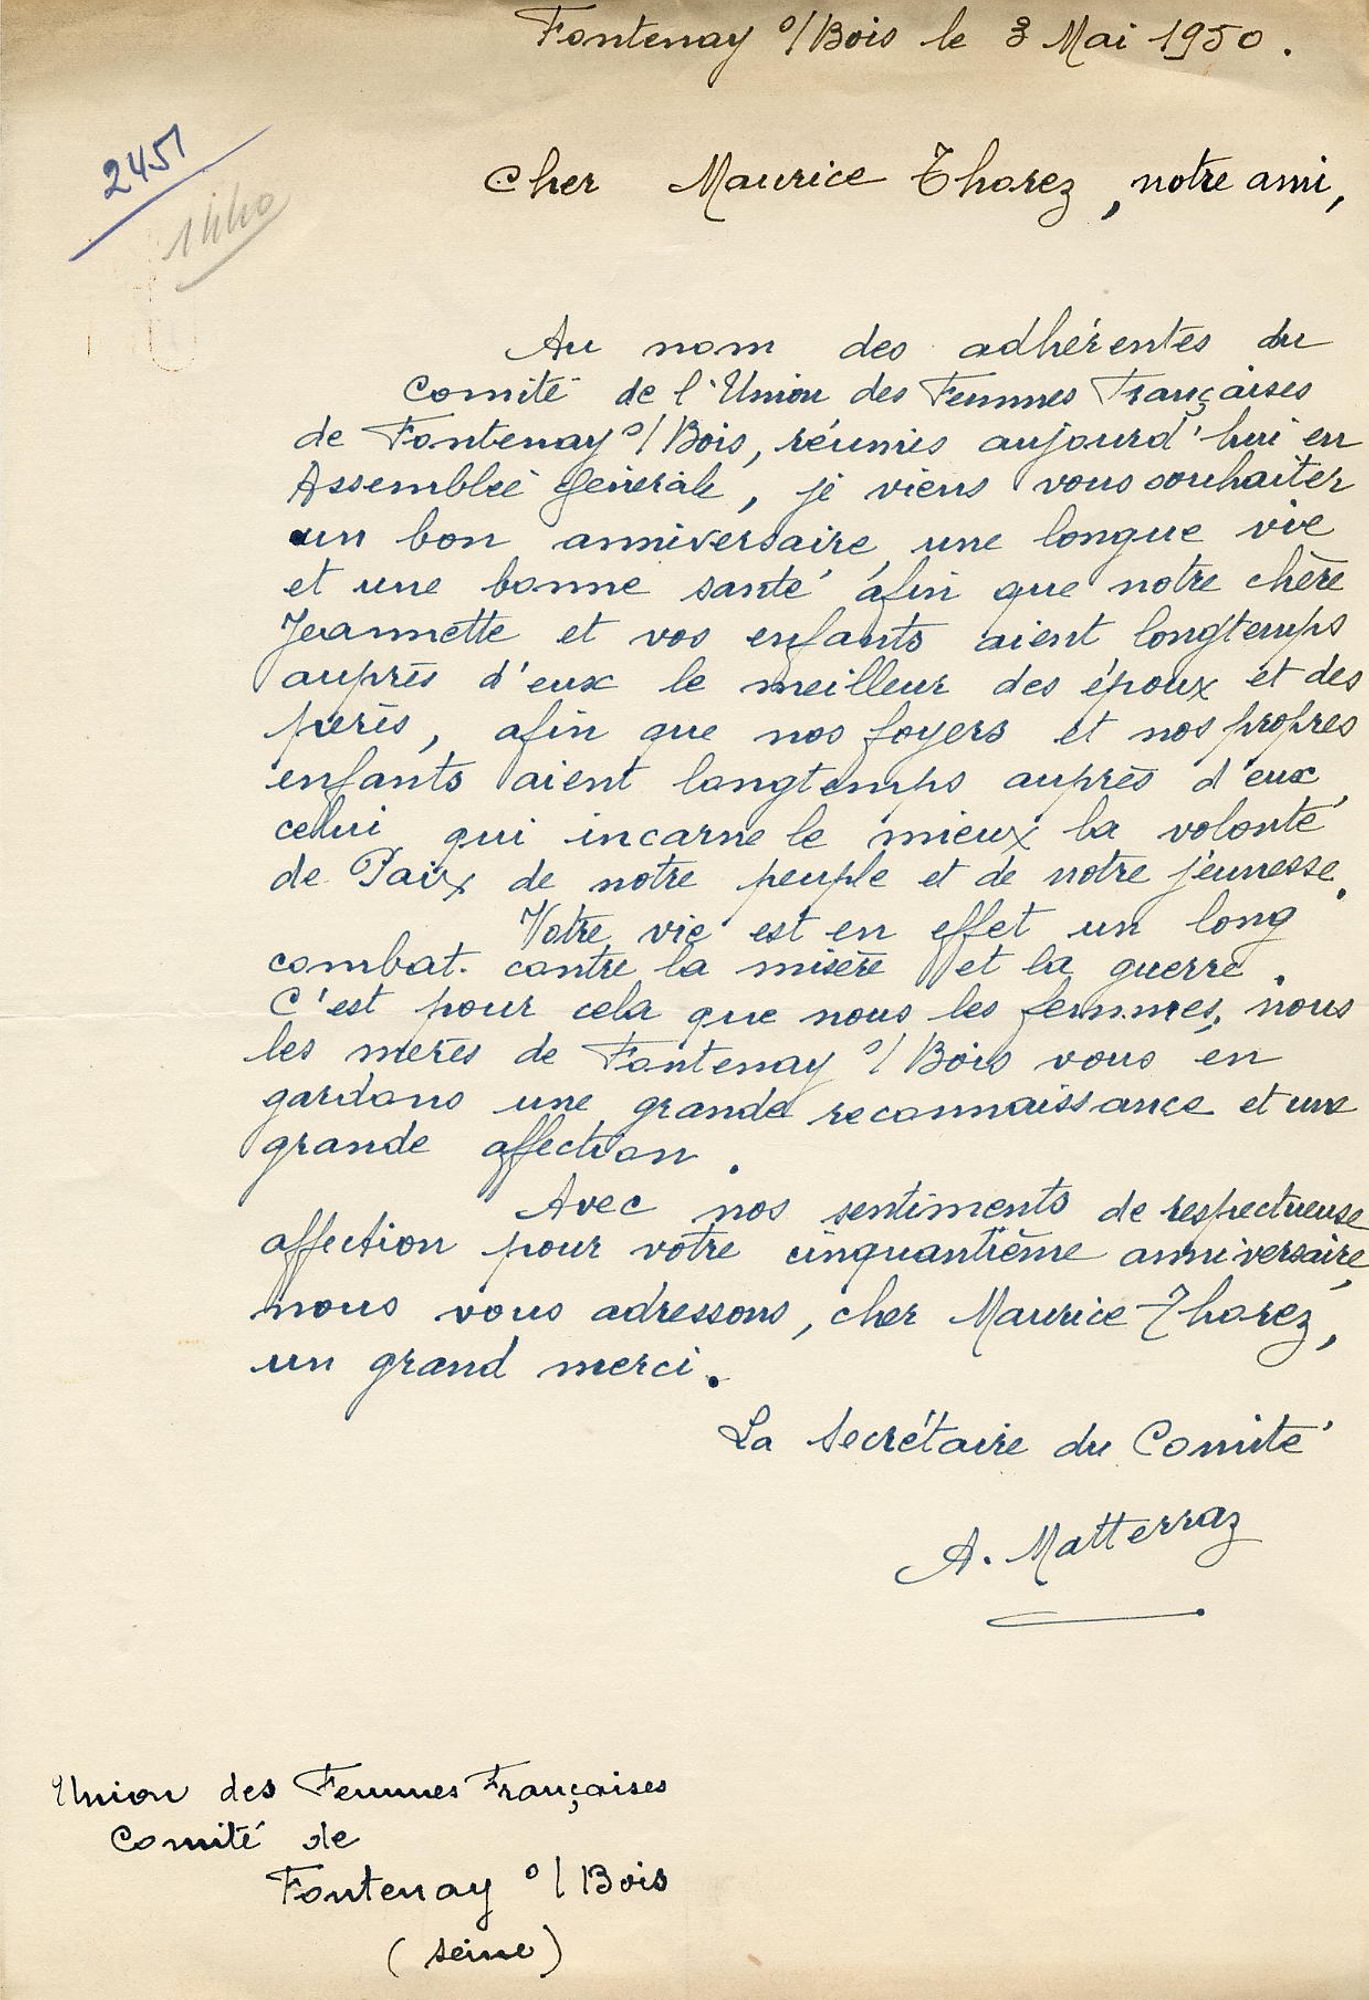 Fontenay s/Bois le 3 Mai 1950.
2451
1440
Cher Maurice Thorez, notre ami,
Au nom des adhérentes du
Comité de l'Union des Femmes Françaises
de Fontenay s/Bois, réunies aujourd'hui en
Assemblée Générale, je viens vous souhaiter
un bon anniversaire, une longue vie
et une bonne santé afin que notre chère
Jeannette et vos enfants aient longtemps
auprès d'eux le meilleur des époux et des
pères, afin que nos foyers et nos propres
enfants aient longtemps auprès d'eux,
celui qui incarne le mieux la volonté
de Paix de notre peuple et de notre jeunesse.
Votre vie est en effet un long
combat contre la misère et la guerre.
C'est pour cela que nous les femmes, nous
les mères de Fontenay s/Bois vous en
gardons une grande reconnaissance et une
grande affection.
Avec nos sentiments de respectueuse
affection pour votre cinquantième anniversaire,
nous vous adressons, cher Maurice Thorez,
un grand merci.
La Secrétaire du Comité
A. Matterraz
Union des Femmes Françaises
Comité de
Fontenay s/Bois
(Seine)